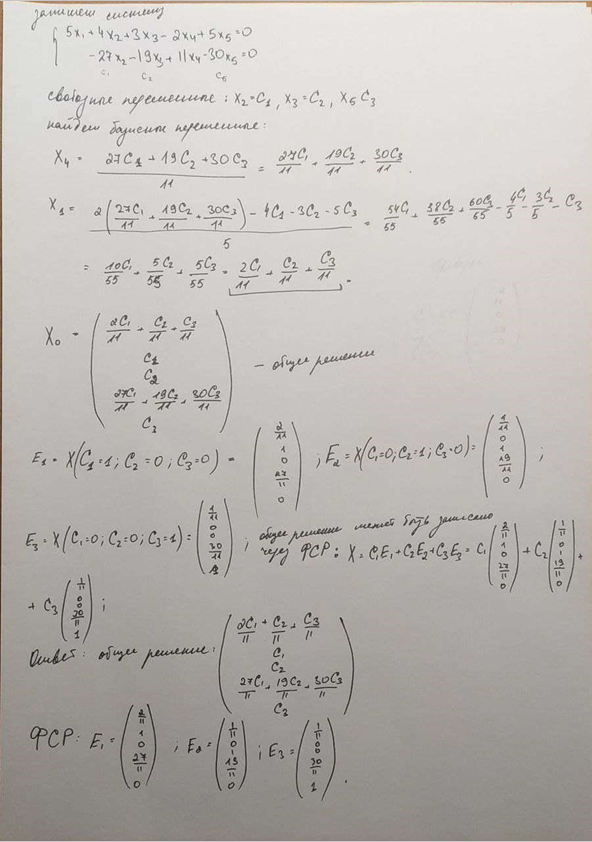 запишем систему
{ 5x₁+4x₂+3x₃-2x₄+5x₅=0
-27x₂-19x₃+11x₄-30x₅=0
C₁ C₂ C₃
свободные переменные: x₂=C₁, x₃=C₂, x₅ C₃
найдем базисные переменные:
X₄ = (27C₁+19C₂+30C₃)/11 = 27C₁/11 + 19C₂/11 + 30C₃/11.
X₁ = (2(27C₁/11 + 19C₂/11 + 30C₃/11) - 4C₁-3C₂-5C₃)/5 = 54C₁/55 + 38C₂/55 + 60C₃/55 - 4C₁/5 - 3C₂/5 - C₃
= 10C₁/55 + 5C₂/55 + 5C₃/55 = 2C₁/11 + C₂/11 + C₃/11.
X₀ = (2C₁/11 + C₂/11 + C₃/11
C₁
C₂
27C₁/11 + 19C₂/11 + 30C₃/11
C₃) — общее решение
E₁ = X(C₁=1; C₂=0; C₃=0) = (2/11 1 0 27/11 0); E₂ = X(C₁=0; C₂=1; C₃=0) = (1/11 0 1 19/11 0);
E₃ = X(C₁=0; C₂=0; C₃=1) = (1/11 0 0 30/11 1); общее решение может быть записано
через ФСР: X = C₁E₁+C₂E₂+C₃E₃ = C₁(2/11 1 0 27/11 0) + C₂(1/11 0 1 19/11 0) +
+ C₃(1/11 0 0 30/11 1);
Ответ: общее решение: (2C₁/11 + C₂/11 + C₃/11
C₁
C₂
27C₁/11 + 19C₂/11 + 30C₃/11
C₃)
ФСР: E₁ = (2/11 1 0 27/11 0); E₂ = (1/11 0 1 19/11 0); E₃ = (1/11 0 0 30/11 1).